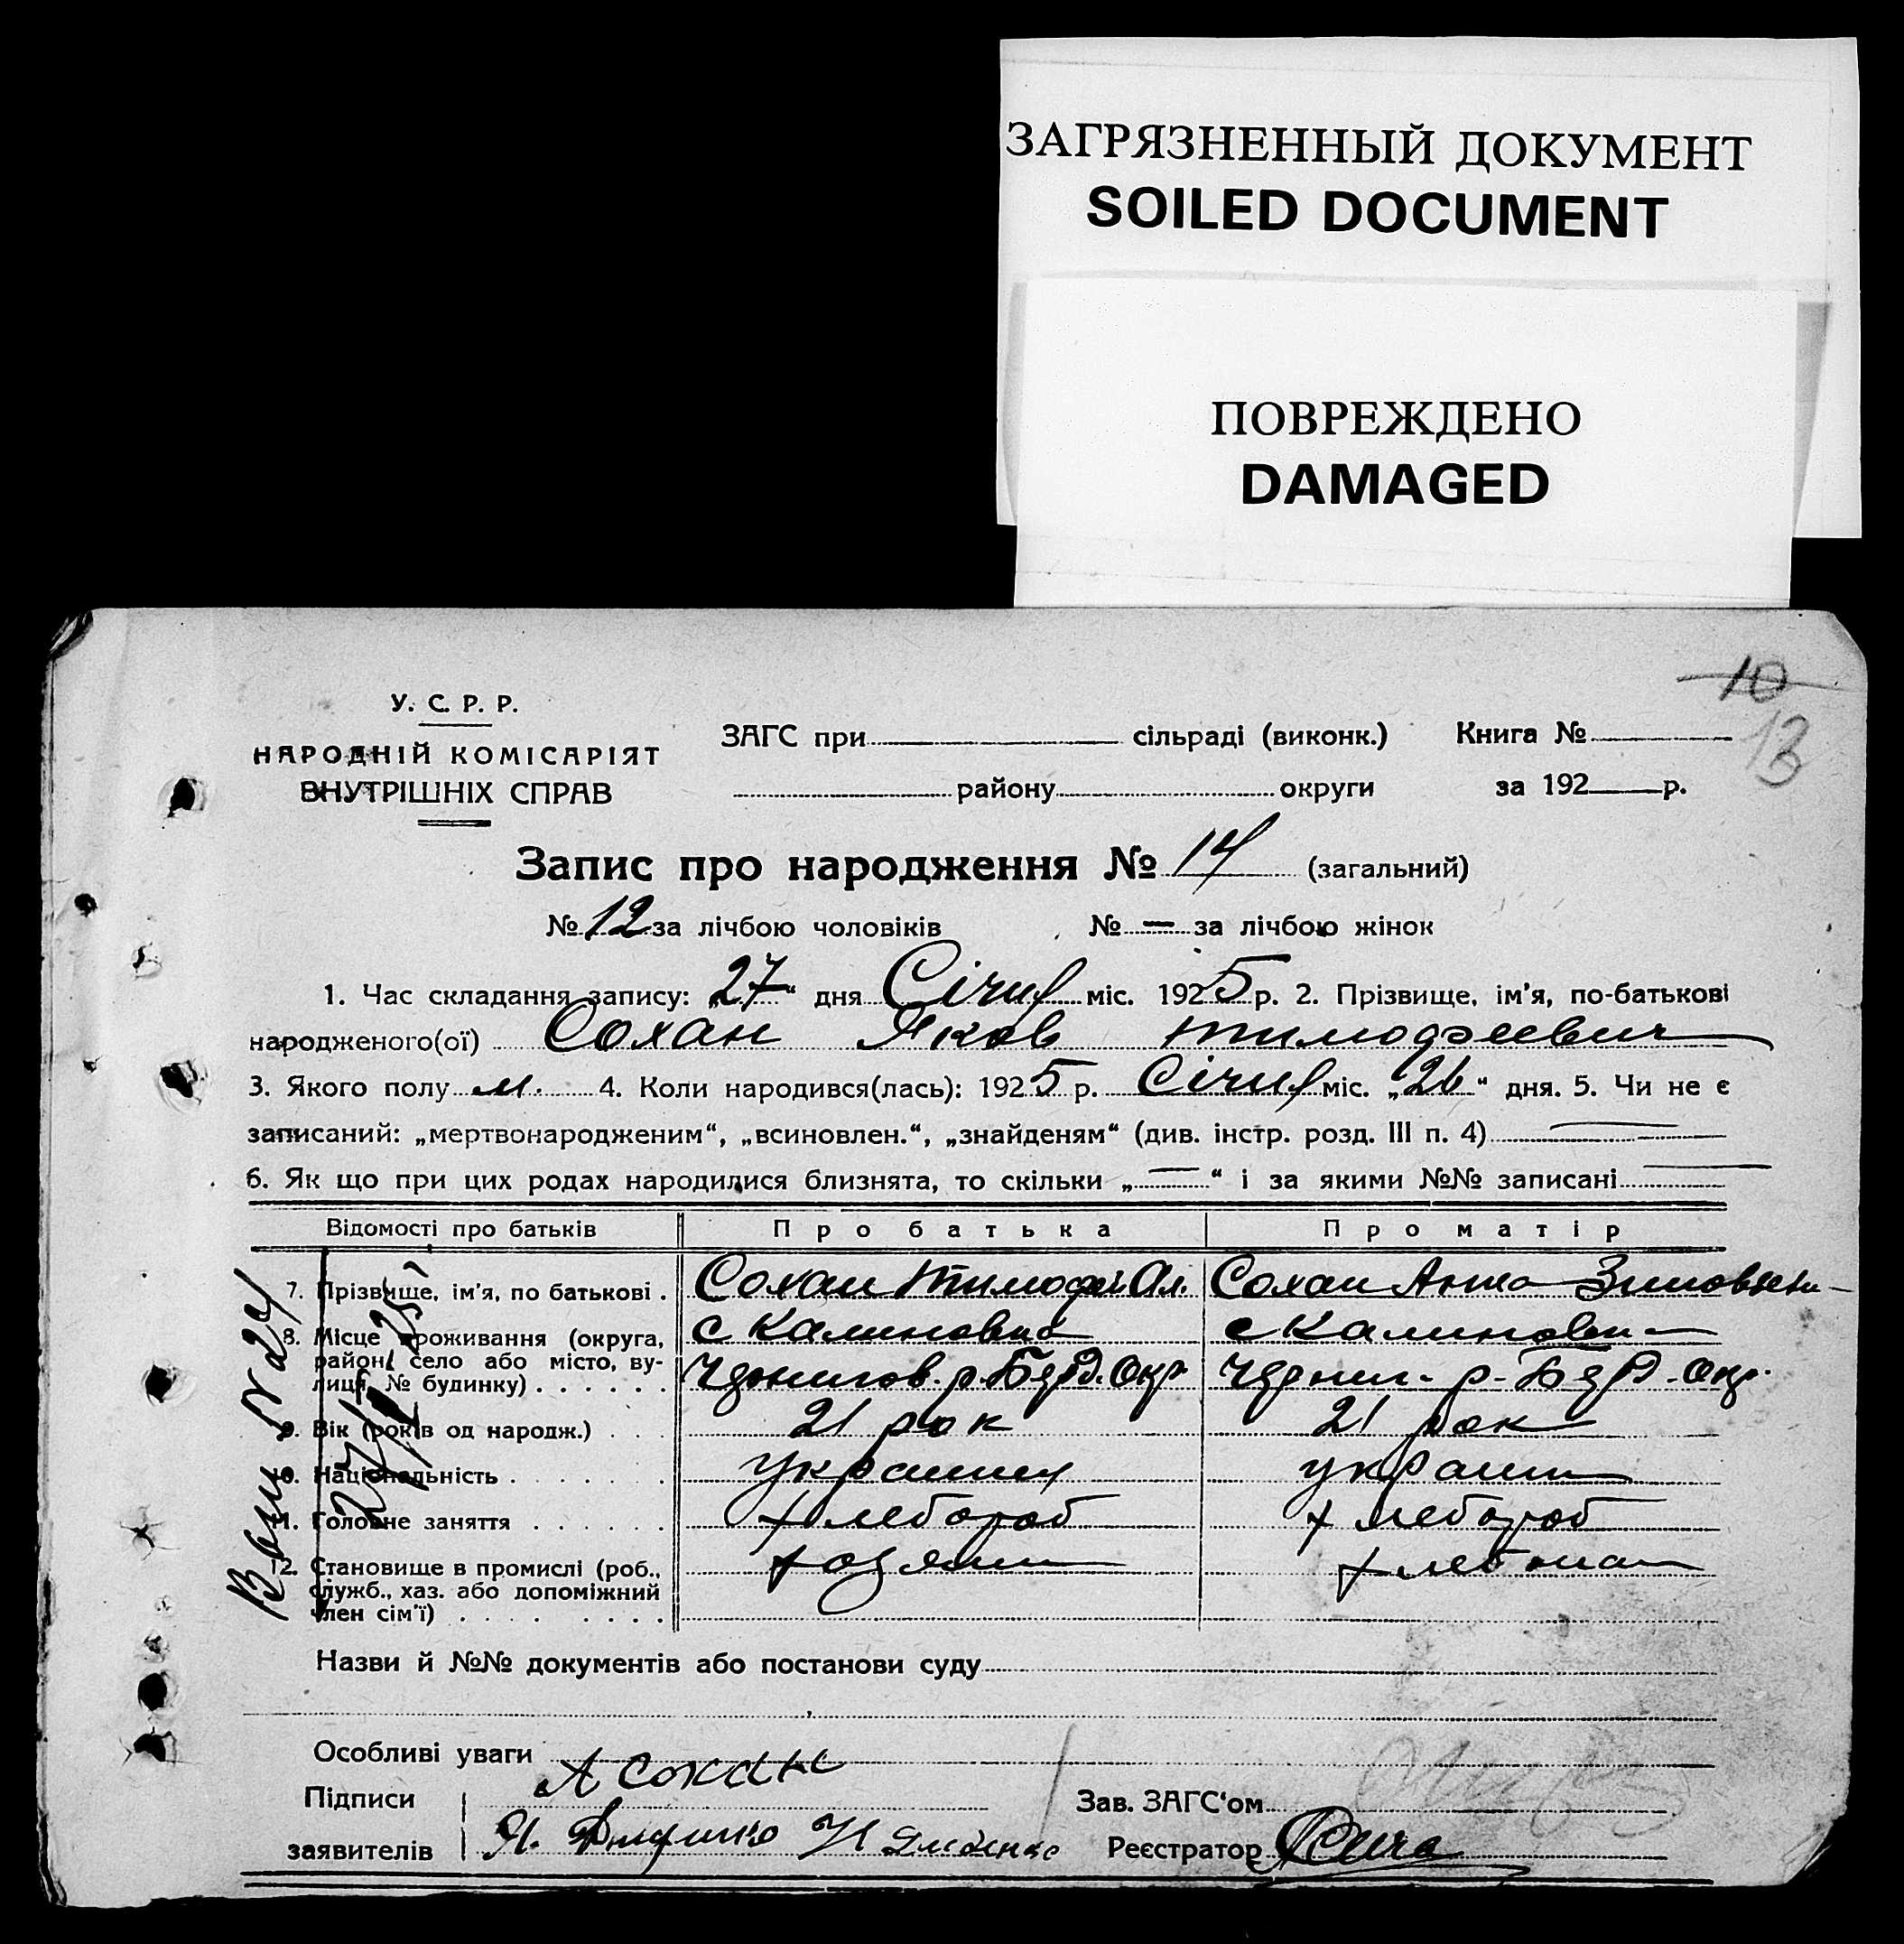 ЗАГРЯЗНЕННЫЙ ДОКУМЕНТ
SOILED DOCUMENT
ПОВРЕЖДЕНО
DAMAGED
10
13
У. С. Р. Р.
НАРОДНІЙ КОМІСАРІЯТ
ВНУТРІШНІХ СПРАВ
ЗАГС при сільраді (виконк.) Книга №
району округи за 192 р.
Запис про народження № 14 (загальний)
№ 12 за лічбою чоловіків № — за лічбою жінок
1. Час складання запису: „27" дня Січня міс. 1925 р. 2. Прізвище, ім'я, по-батькові
народженого(ої) Сохан Яков Тимофеевич
3. Якого полу м. 4. Коли народився(лась): 1925 р. Січня міс. „26" дня. 5. Чи не є
записаний: „мертвонародженим", „всиновлен.", „знайденям" (див. інстр. розд. III п. 4) —
6. Як що при цих родах народилися близнята, то скільки „—" і за якими №№ записані —
Відомості про батьків Про батька Про матір
7. Прізвище, ім'я, по батькові . Сохан Тимофей Ал. Сохан Анна
8. Місце проживання (округа, район, село або місто, вулиця, № будинку) . . . . . . с Калиновка с Калиновка
Чернигов. р. Берд. Окр. Черниг. р. Берд. Окр.
9. Вік (років од народж.) . . . 21 рок 21 рок
10. Національність . . . . . . . украинец украин
11. Головне заняття . . . . . . хлебороб хлебороб
12. Становище в промислі (роб., служб., хаз. або допоміжний член сім'ї) . . . . хозяин
Назви й №№ документів або постанови суду
Особливі уваги
Підписи А Сохан
заявителів Я.
Зав. ЗАГС'ом
Реєстратор